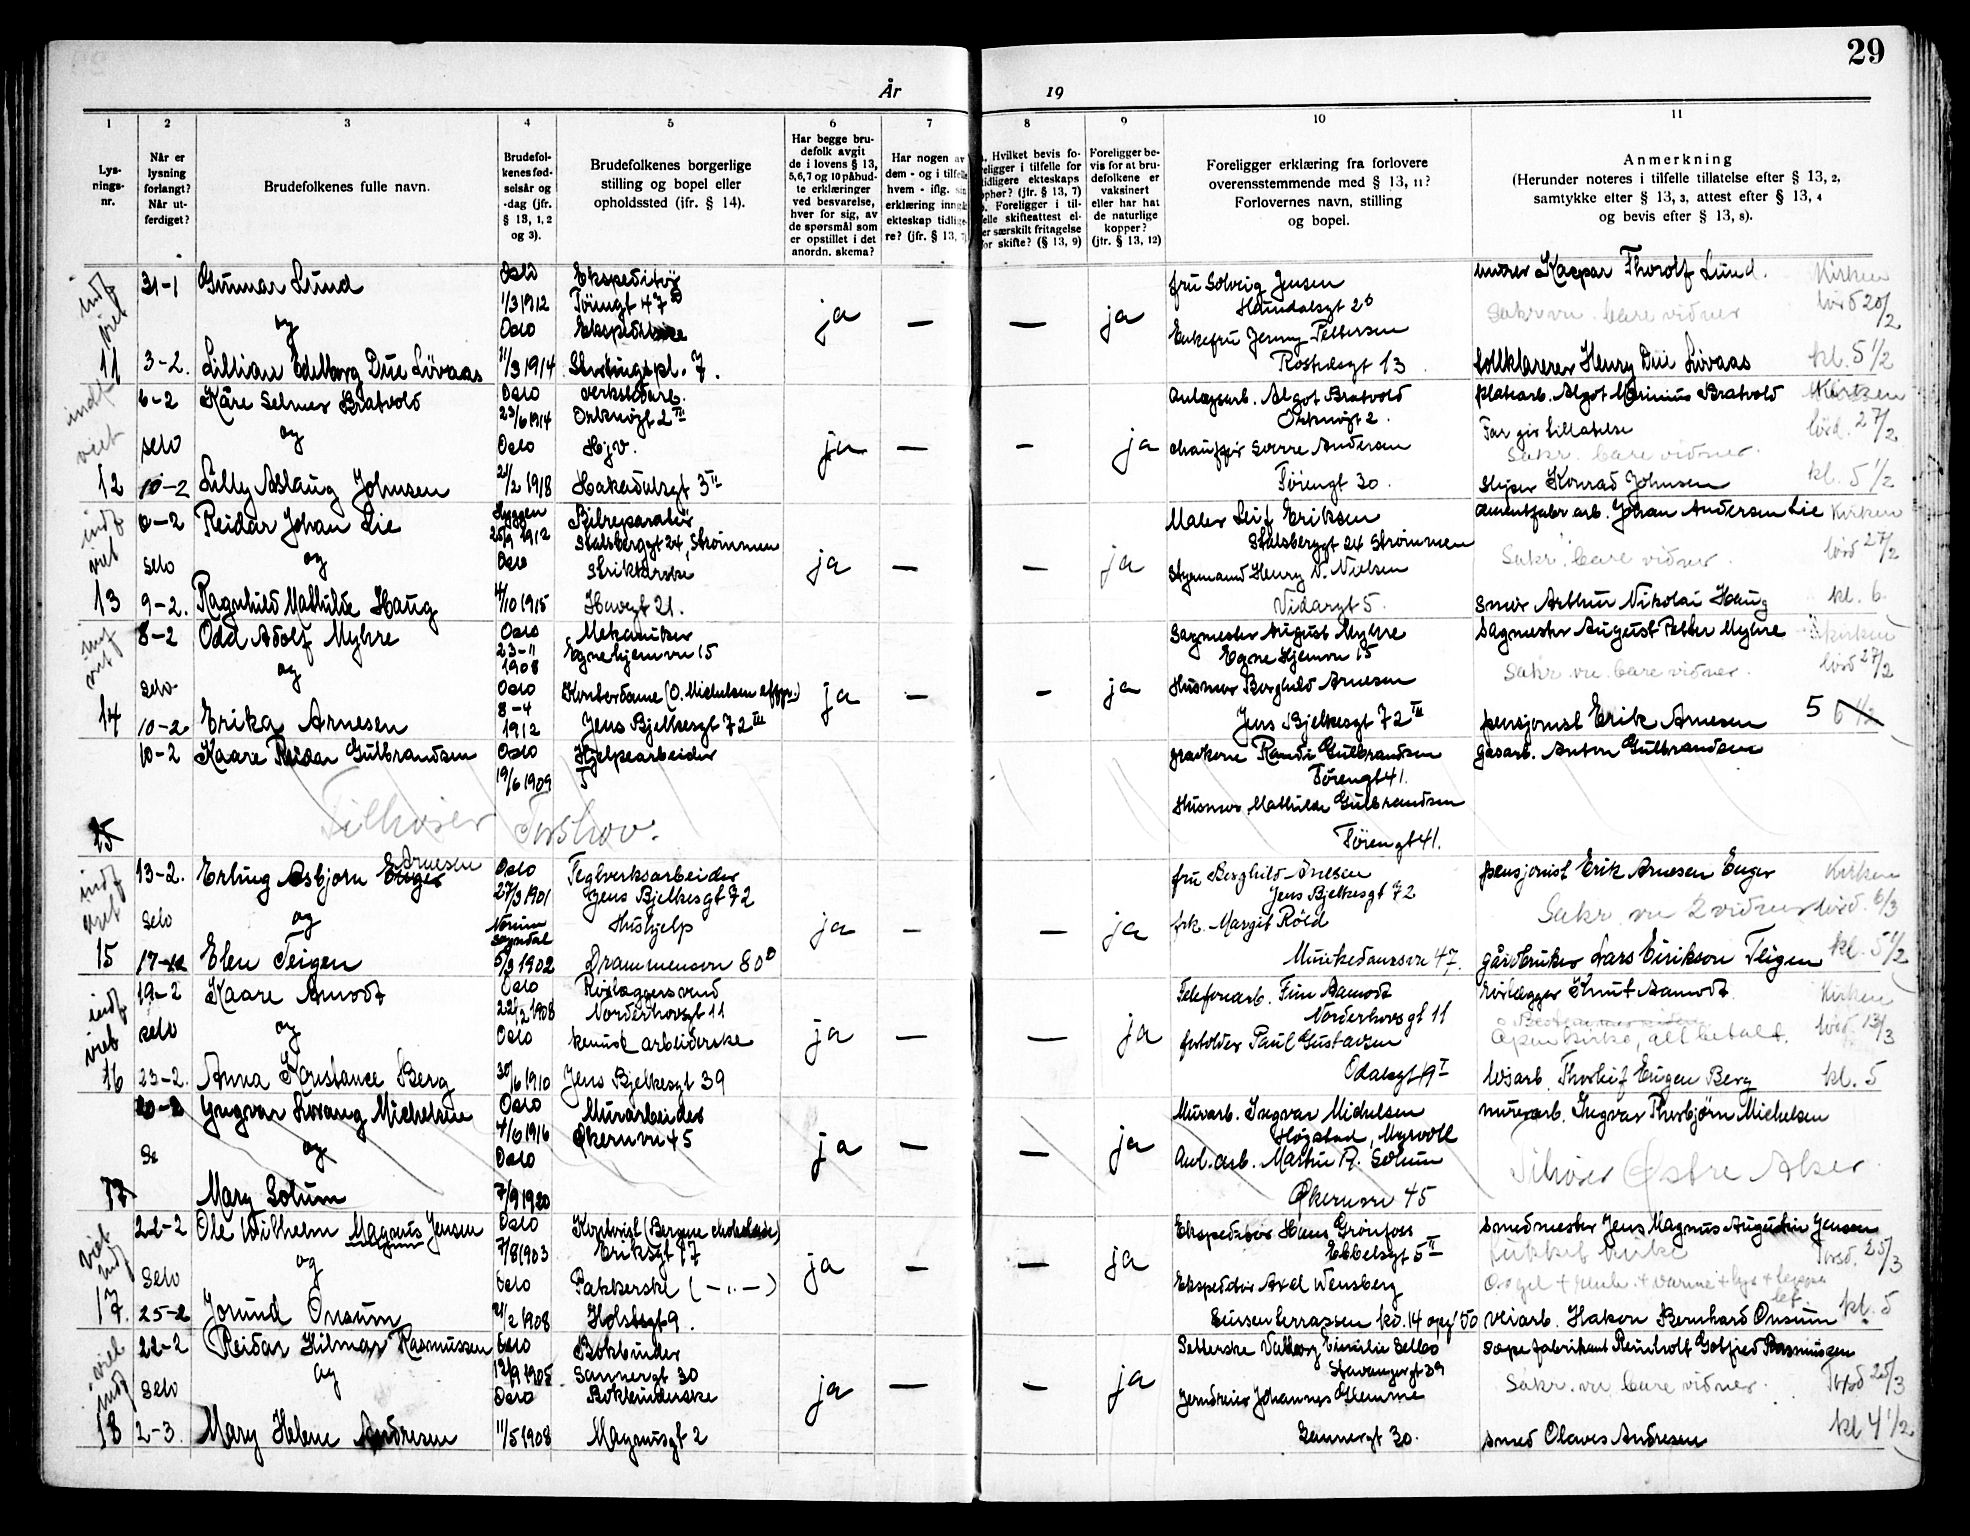 29
År 19
1 2 3 4 5 6 7 8 9 10 11
Lys-
nings-
nr.
Når er
lysning
forlangt?
Når ut-
ferdiget?
Brudefolkenes fulle navn.
Brudefol-
kenes fød-
selsår og
-dag (jfr.
§ 13, 1, 2
og 3).
Brudefolkenes borgerlige
stilling og bopel eller
opholdssted (ifr. § 14).
Har begge bru-
defolk avgit
de i lovens § 13,
5,6,7 og 10 påbud-
te erklæringer
ved besvarelse,
hver for sig, av
de spørsmål som
er opstillet i det
anordn. skema?
Har nogen av
dem - og i tilfelle
hvem - iflg. sin
erklæring inngått
ekteskap tidlige-
re? (jfr. § 13,
Hvilket bevis fo-
religger i tilfelle for
tidligere ekteskaps
ophør? (jfr. § 13, 7)
Foreligger i til-
felle skifteattest el-
er særskilt fritagelse
for skifte? (§ 13, 9)
Foreligger be-
vis for at bru-
defolkene er
vaksinert
eller har hat
de naturlige
kopper?
(jfr. § 13, 12)
Foreligger erklæring fra forlovere
overensstemmende med § 13, 11?
Forlovernes navn, stilling
og bopel.
Anmerkning
(Herunder noteres i tilfelle tillatelse efter § 13, 2,
samtykke efter § 13, 3, attest efter § 13, 4
og bevis efter § 13, 8).
indf viet
11
31-1
3-2.
Gunnar Lund
og
Lillian Edelborg Due Lövaas
Oslo
1/3 1912
Oslo
11/3 1914
Ekspeditør
Töiengt 47
7.
ja — — ja
fru Solveig Jensen
Enkefru Jenny Pettersen
13
murer Kaspar Thorolf Lund.
Sakr. vu. bare vidner
tollklarerer Henry Due Lövaas
Kirken
lörd 20/2
kl. 5 1/2
indf viet
12
6-2
selv
10-2
Kåre Selmer Bratvold
og
Lilly Aslaug Johnsen
Oslo
23/6 1914
Oslo
1918
2 III
Hjv.
Hakadalsgt 3 II
ja — — ja
Anlægsarb. Algot Bratvold
2.
chauffør Sverre Andersen
Töiengt 30.
platearb. Algot Marinius Bratvold
Far gir tillatelse
Sakr. bare vidner.
sliper Konrad Johnsen
Kirken
lörd. 27/2
kl. 5 1/2
indf viet
13
selv
9-2.
Reidar Johan Lie
og
Ragnhild Mathilde Haug
Hyggen
25/9 1912
Oslo
/10 1915
Bilreparatør
Stalsberggt 24, Strømmen
Strikkerske
21.
ja — — ja
Maler Leif Eriksen
Stalsberggt 24 Strømmen
Styrmand Henry V. Nielsen
Vidarsgt 5.
cementstøber arb. Johan Andersen Lie
Sakr. bare vidner.
smør Arthur Nikolai Haug
Kirken
lörd 27/2
kl. 6
indf viet
14
8-2
selv
10-2
Odd Adolf Myhre
og
Erika Arnesen
Oslo
23-11
1908
Oslo
8-4
1912
Mekaniker
Egnehjemvn 15
Kontordame (O. Mickelsen eftf.)
Jens Bjelkesgt 72 III
ja — — ja
Sagmester August Myhre
Egne Hjemvn 15
Husmor Borghild Arnesen
Jens Bjelkesgt 72 III
Sagmester August Petter Myhre
Sakr. vu. bare vidner.
pensjonist Erik Arnesen
kirken
lörd 27/2
5 6 1/2
15
10-2
Kaare Reidar Gulbrandsen
Oslo
19/6 1909
Hjelpearbeider
T
Tilhører Torshov.
Randi Gulbrandsen
Töiengt 41.
Husmor Mathilde Gulbrandsen
Töiengt 41.
gasarb. Anton Gulbrandsen
indf viet
15
13-2.
selv
17-
Erling Asbjørn Enger Arnesen
og
Elen Teigen
Oslo
27/3 1901
Norum
Sogndal
5/3 1902
Teglverksarbeider
Jens Bjelkesgt 72
Hushjelp
Drammensvn 80 D
ja — — ja
fru Borghild
Jens Bjelkesgt 72
frk. Margit Röed
Munkedamsvn 47.
pensjonist Erik Arnesen Enger
Sakr vu 2 vidner
gårdbruker Lars Eirikson Teigen
Kirken
lörd. 6/3
kl. 5 1/2
indf viet
16
19-2
selv
23-2.
Kaare Amodt
og
Anna Konstance Berg
Oslo
22/12 1908
Oslo
30/6 1910
Rörlæggersvend
Norderhovsgt 11
kemisk arbeiderske
Jens Bjelkesgt 39
ja — — ja
Telefonarb. Finn Aamodt
Norderhovsgt 11
forvalter Paul Gustavsen
Odalsgt 9 I
Rørlægger Knut Aamodt
Åpen kirke, alt betalt.
Thorleif Eugen Berg
Kirken
lörd. 13/3
kl. 5
17
20-2
Se
Yngvar Lorang Michelsen
og
Mary Solum
Oslo
4/6 1916
Oslo
7/9 1920
Murarbeider
Økernvn 45
ja — — ja
Murarb. Ingvar Michelsen
Høgstad, Myrvoll
Anl. arb. Martin R. Solum
Økernvn 45
murerarb. Ingvar Thorbjörn Michelsen
Tilhører Østre Aker
viet indf
17.
22-2
selv
25-2
Ole Wilhelm Magnus Jensen
og
Jorund Onsum
Oslo
7/8 1903
Oslo
21/2 1908
(Bergene chokolade)
Eriksgt 17
Pakkerske ( — " — )
Holstsgt 9.
ja — — ja
Ekspeditør Hans Grönfoss
Ebbelsgt 5 II
Ekspeditør Axel Wensberg
smedmester Jens Magnus Augustin Jensen
lukket kirke
Orgel + + varme + lys + teppe
veiarb. Hakon Bernhard Onsum
Torsd. 25/3
kl. 5
viet indf
18
22-2
selv
2-3.
Reidar Hilmar Rasmussen
og
Mary Helene Andresen
Oslo
12/9 1905
Oslo
11/5 1908
Bokbinder
Sannergt 30
Bokbinderske
Magnusgt 2
ja — — ja
Setterske Valborg Emilie Selbo
Stavangergt 39
Jerndreier Johannes Glemme
Sannergt 30.
såpefabrikant Reinholt Gotfred Rasmussen
Sakr. vu bare vidner.
smed Olaves Andresen
Torsd 25/3
kl 4 1/2